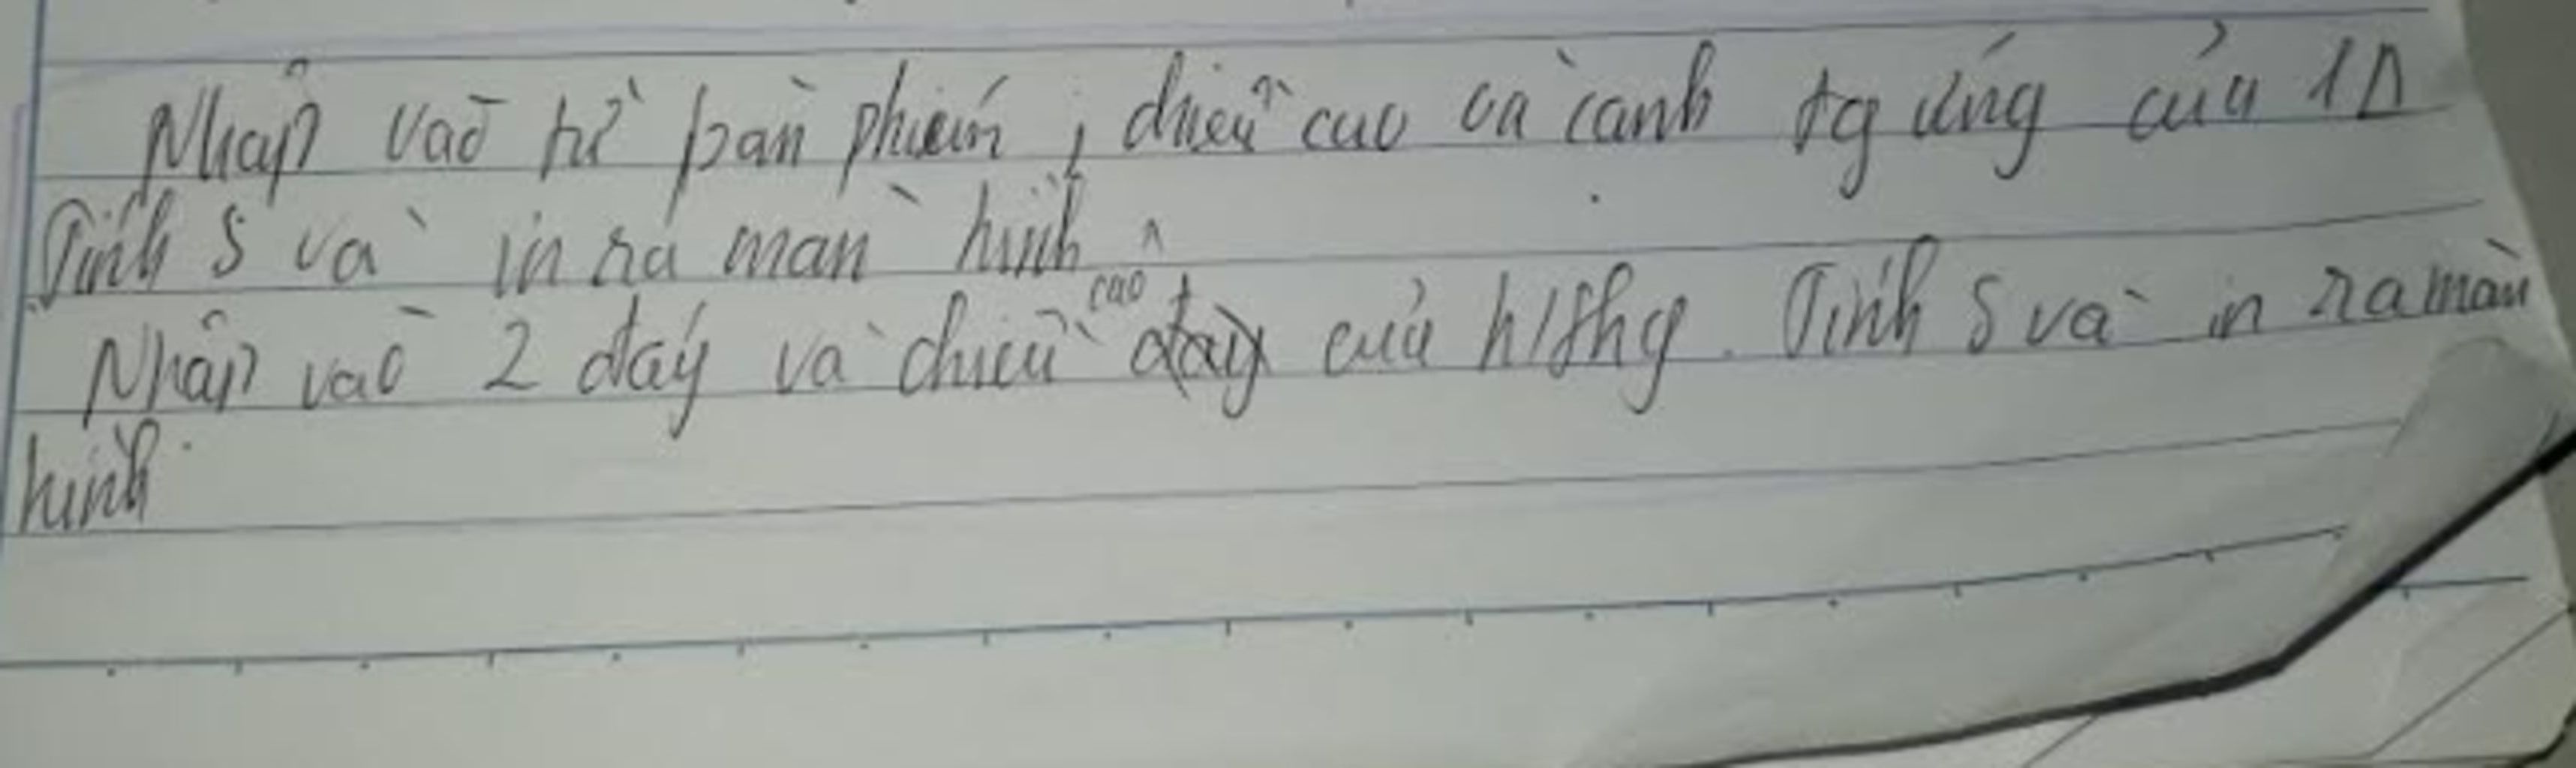 Nhập vào từ bàn phím, chiều cao và cạnh tg ứng của 1 Δ
Tính S và in ra màn hình
Nhập vào 2 đáy và chiều cao của h/thg. Tính S và in ra màn
hình.